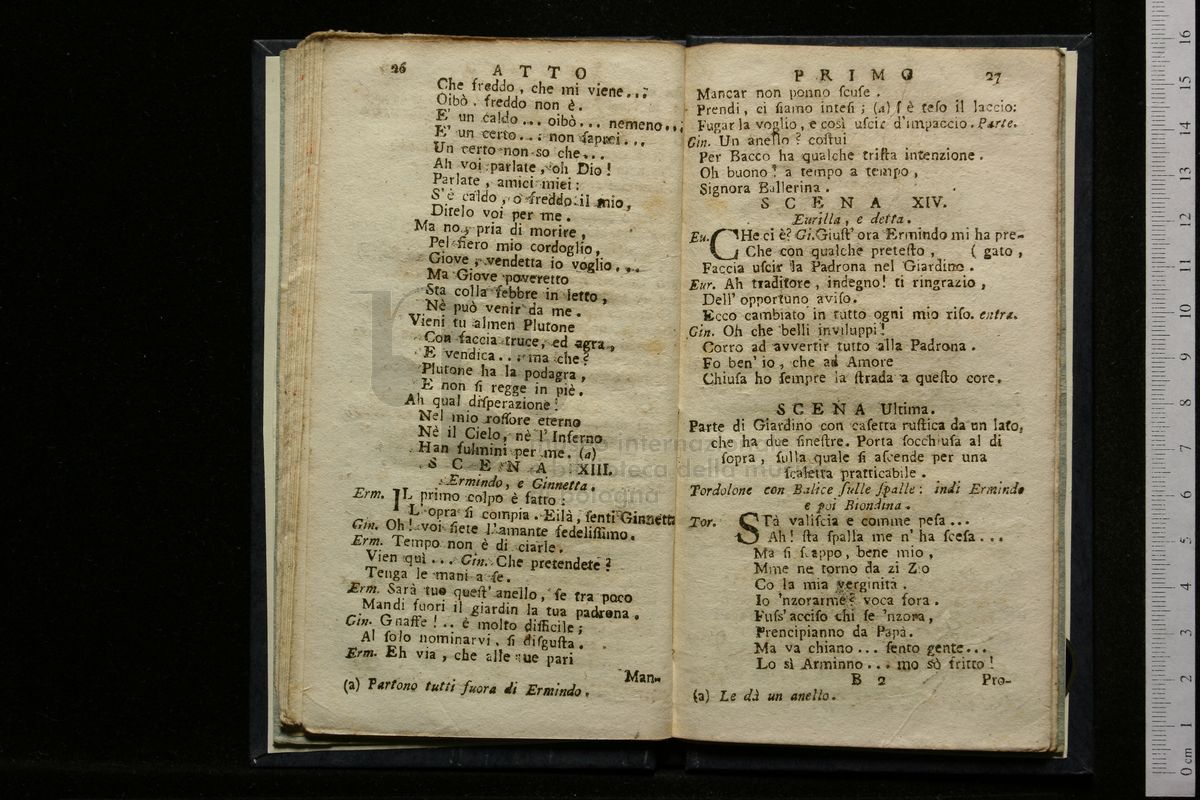 26
A T T O
Che freddo, che mi viene..;
Oibò, freddo non è.
E' un caldo... oibò... nemeno..;
E' un certo..: non saprei...
Un certo non so che...
Ah voi parlate, oh Dio!
Parlate, amici miei:
S'è caldo, o freddo il mio,
Ditelo voi per me.
Ma no, pria di morire,
Pel fiero mio cordoglio,
Giove, vendetta io voglio...
Ma Giove poveretto
Sta colla febbre in letto,
Nè può venir da me.
Vieni tu almen Plutone
Con faccia truce, ed agra,
E vendica..: ma che?
Plutone ha la podagra,
E non si regge in piè.
Ah qual disperazione!
Nel mio rossore eterno
Nè il Cielo, nè l'Inferno
Han fulmini per me. (a)
S C E N A XIII.
Ermindo, e Ginnetta.
Erm. IL primo colpo è fatto:
L'opra si compia. Eilà, senti Ginnetta
Gin. Oh! voi siete l'amante fedelissimo.
Erm. Tempo non è di ciarle.
Vien quì... Gin. Che pretendete?
Tenga le mani a se.
Erm. Sarà tuo quest'anello, se tra poco
Mandi fuori il giardin la tua padrona.
Gin. Gnaffe!.. è molto difficile;
Al solo nominarvi, si disgusta.
Erm. Eh via, che alle tue pari
Man-
(a) Partono tutti fuora di Ermindo.
P R I M O
27
Mancar non ponno scuse.
Prendi, ci siamo intesi; (a) s'è teso il laccio:
Fugar la voglio, e così uscir d'impaccio. Parte.
Gin. Un anello? costui
Per Bacco ha qualche trista intenzione.
Oh buono! a tempo a tempo,
Signora Ballerina.
S C E N A XIV.
Eurilla, e detta.
Eu. CHe ci è? Gi. Giust' ora Ermindo mi ha pre-
Che con qualche pretesto, ( gato,
Faccia uscir la Padrona nel Giardino.
Eur. Ah traditore, indegno! ti ringrazio,
Dell' opportuno aviso.
Ecco cambiato in tutto ogni mio riso. entra.
Gin. Oh che belli inviluppi!
Corro ad avvertir tutto alla Padrona.
Fo ben' io, che ad Amore
Chiusa ho sempre la strada a questo core.
S C E N A Ultima.
Parte di Giardino con casetta rustica da un lato,
che ha due finestre. Porta socchiusa al di
sopra, sulla quale si ascende per una
scaletta pratticabile.
Tordolone con Balice sulle spalle: indi Ermindo
e poi Biondina.
Tor. STà valiscia e comme pesa...
Ah! sta spalla me n' ha scesa...
Ma si scappo, bene mio,
Mme ne torno da zi Zio
Co la mia verginità.
Io 'nzorarme? voca fora.
Fuss' acciso chi se 'nzora,
Prencipianno da Papà.
Ma va chiano... sento gente...
Lo sì Arminno... mo sò fritto!
B 2
Pro-
(a) Le dà un anello.